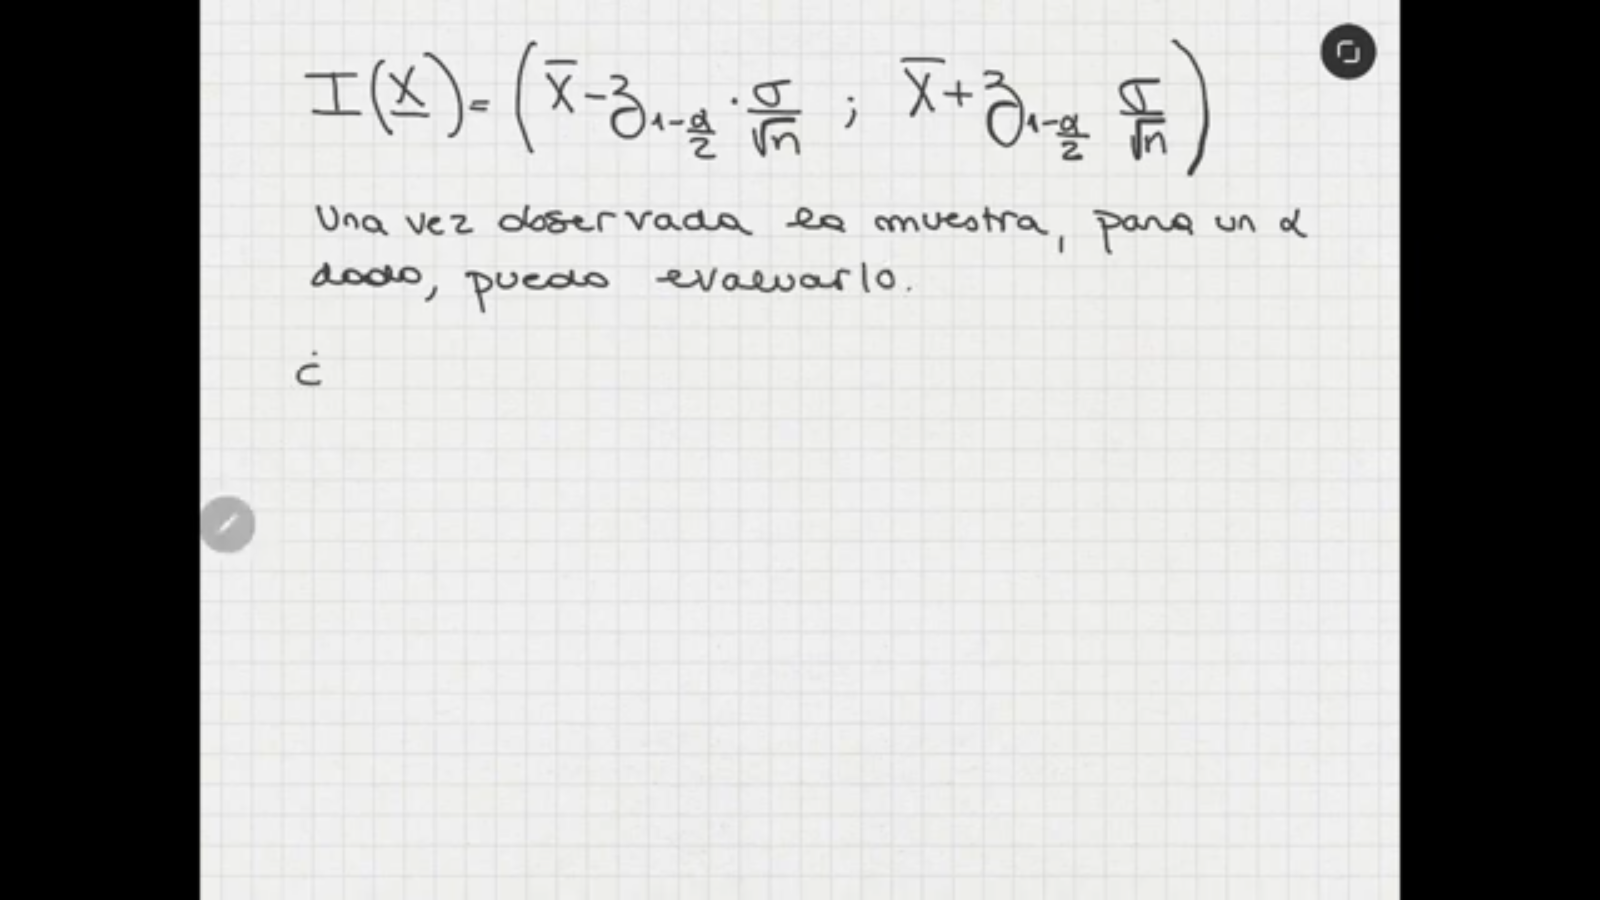 I(X) = ( X̄ - z_{1-α/2} · σ/√n ; X̄ + z_{1-α/2} σ/√n )
Una vez observada la muestra, para un α
dado, puedo evaluarlo.
¿